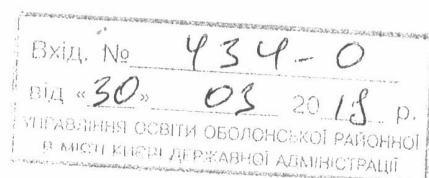 Вхід. № 434-0
від «30» 03 2018 р.
УПРАВЛІННЯ ОСВІТИ ОБОЛОНСЬКОЇ РАЙОННОЇ
В МІСТІ КИЄВІ ДЕРЖАВНОЇ АДМІНІСТРАЦІЇ